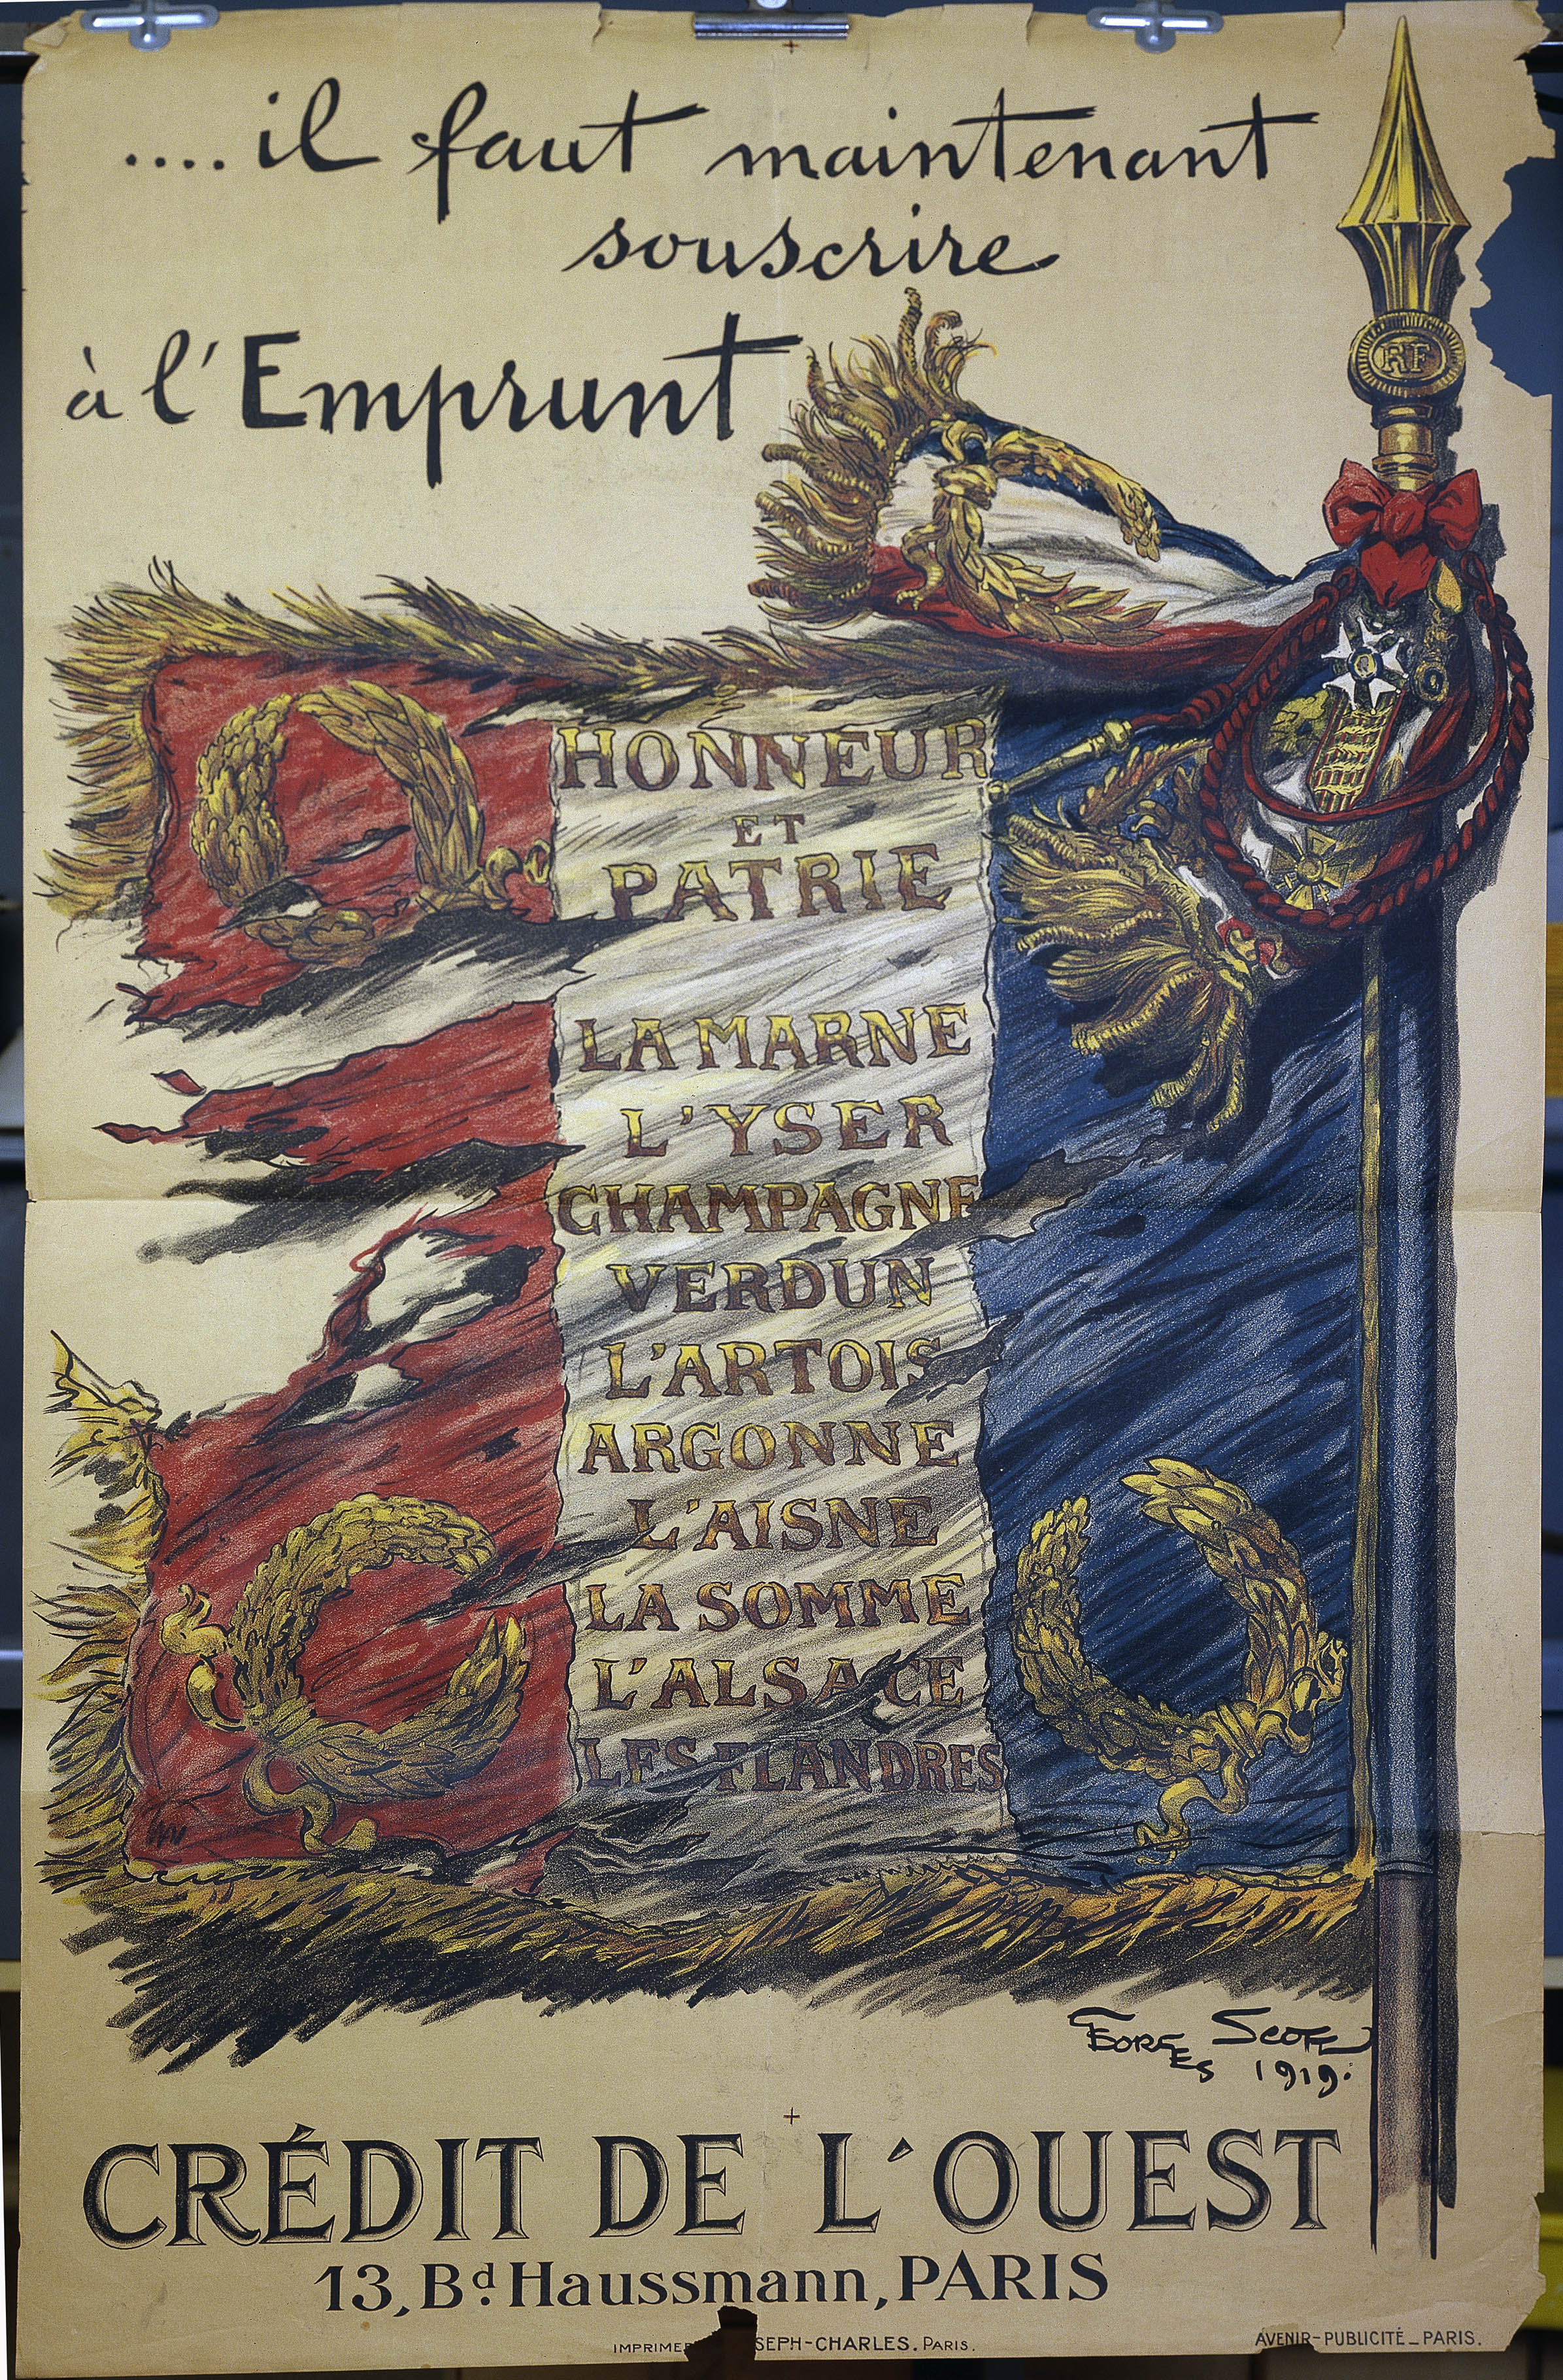 .... il faut maintenant
souscrire
à l'Emprunt
RF
HONNEUR
ET
PATRIE
LA MARNE
L'YSER
CHAMPAGNE
VERDUN
L'ARTOIS
ARGONNE
L'AISNE
LA SOMME
L'ALSACE
LES FLANDRES
GEORGES SCOTT
1919.
CRÉDIT DE L'OUEST
13, Bd. Haussmann, PARIS
SEPH-CHARLES. PARIS.
AVENIR-PUBLICITÉ_PARIS.